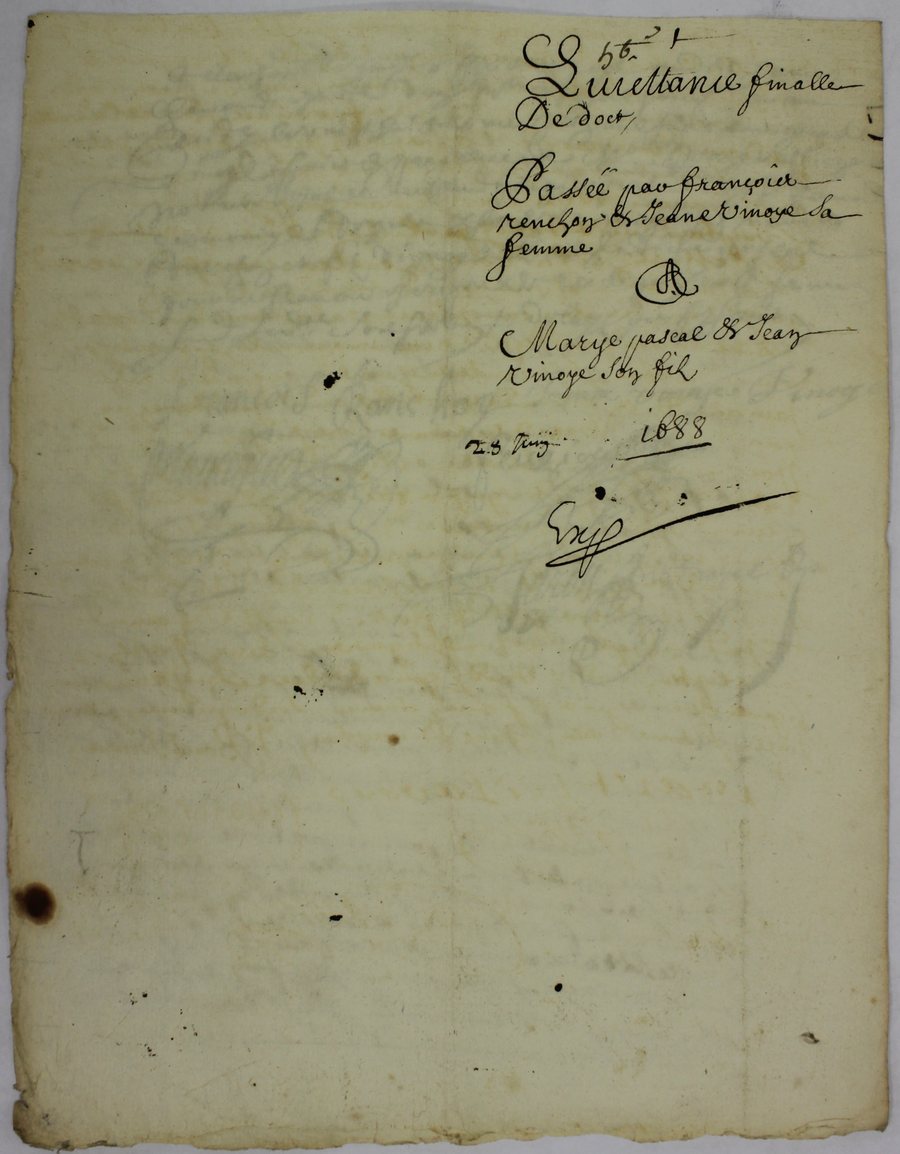 Quiettance finalle
De doct
Passéé par françoix
renchon & Jeane Vinoye sa
femme
A
Marye pascal & Jean
Vinoye son filz
28 Juin 1688